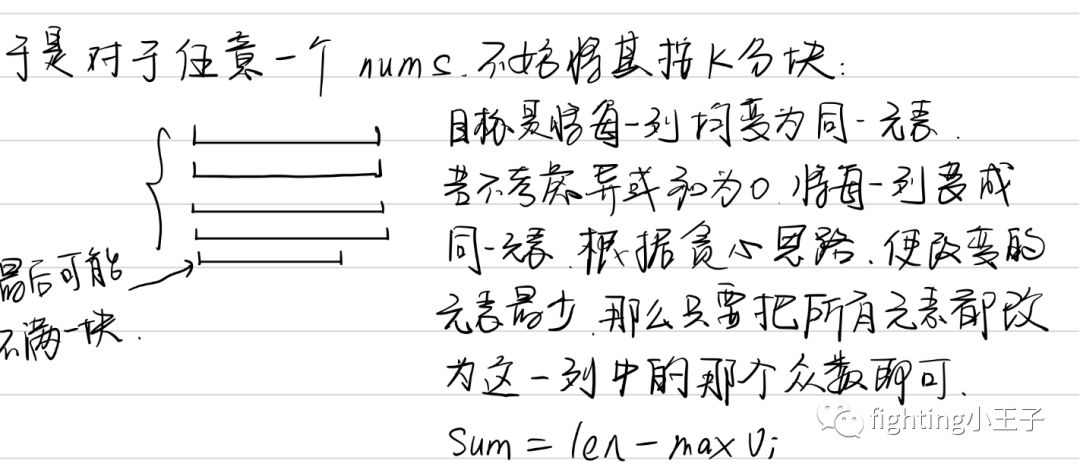 于是对于任意一个 nums.不妨将其按K分块:
目标是将每一列均变为同一元素.
若不考虑异或和为0,将每一列变成
同一元素.根据贪心思路.使改变的
元素最少.那么只要把所有元素都改
为这一列中的那个众数即可.
sum = len - max Vi
最后可能
不满一块.
fighting小王子